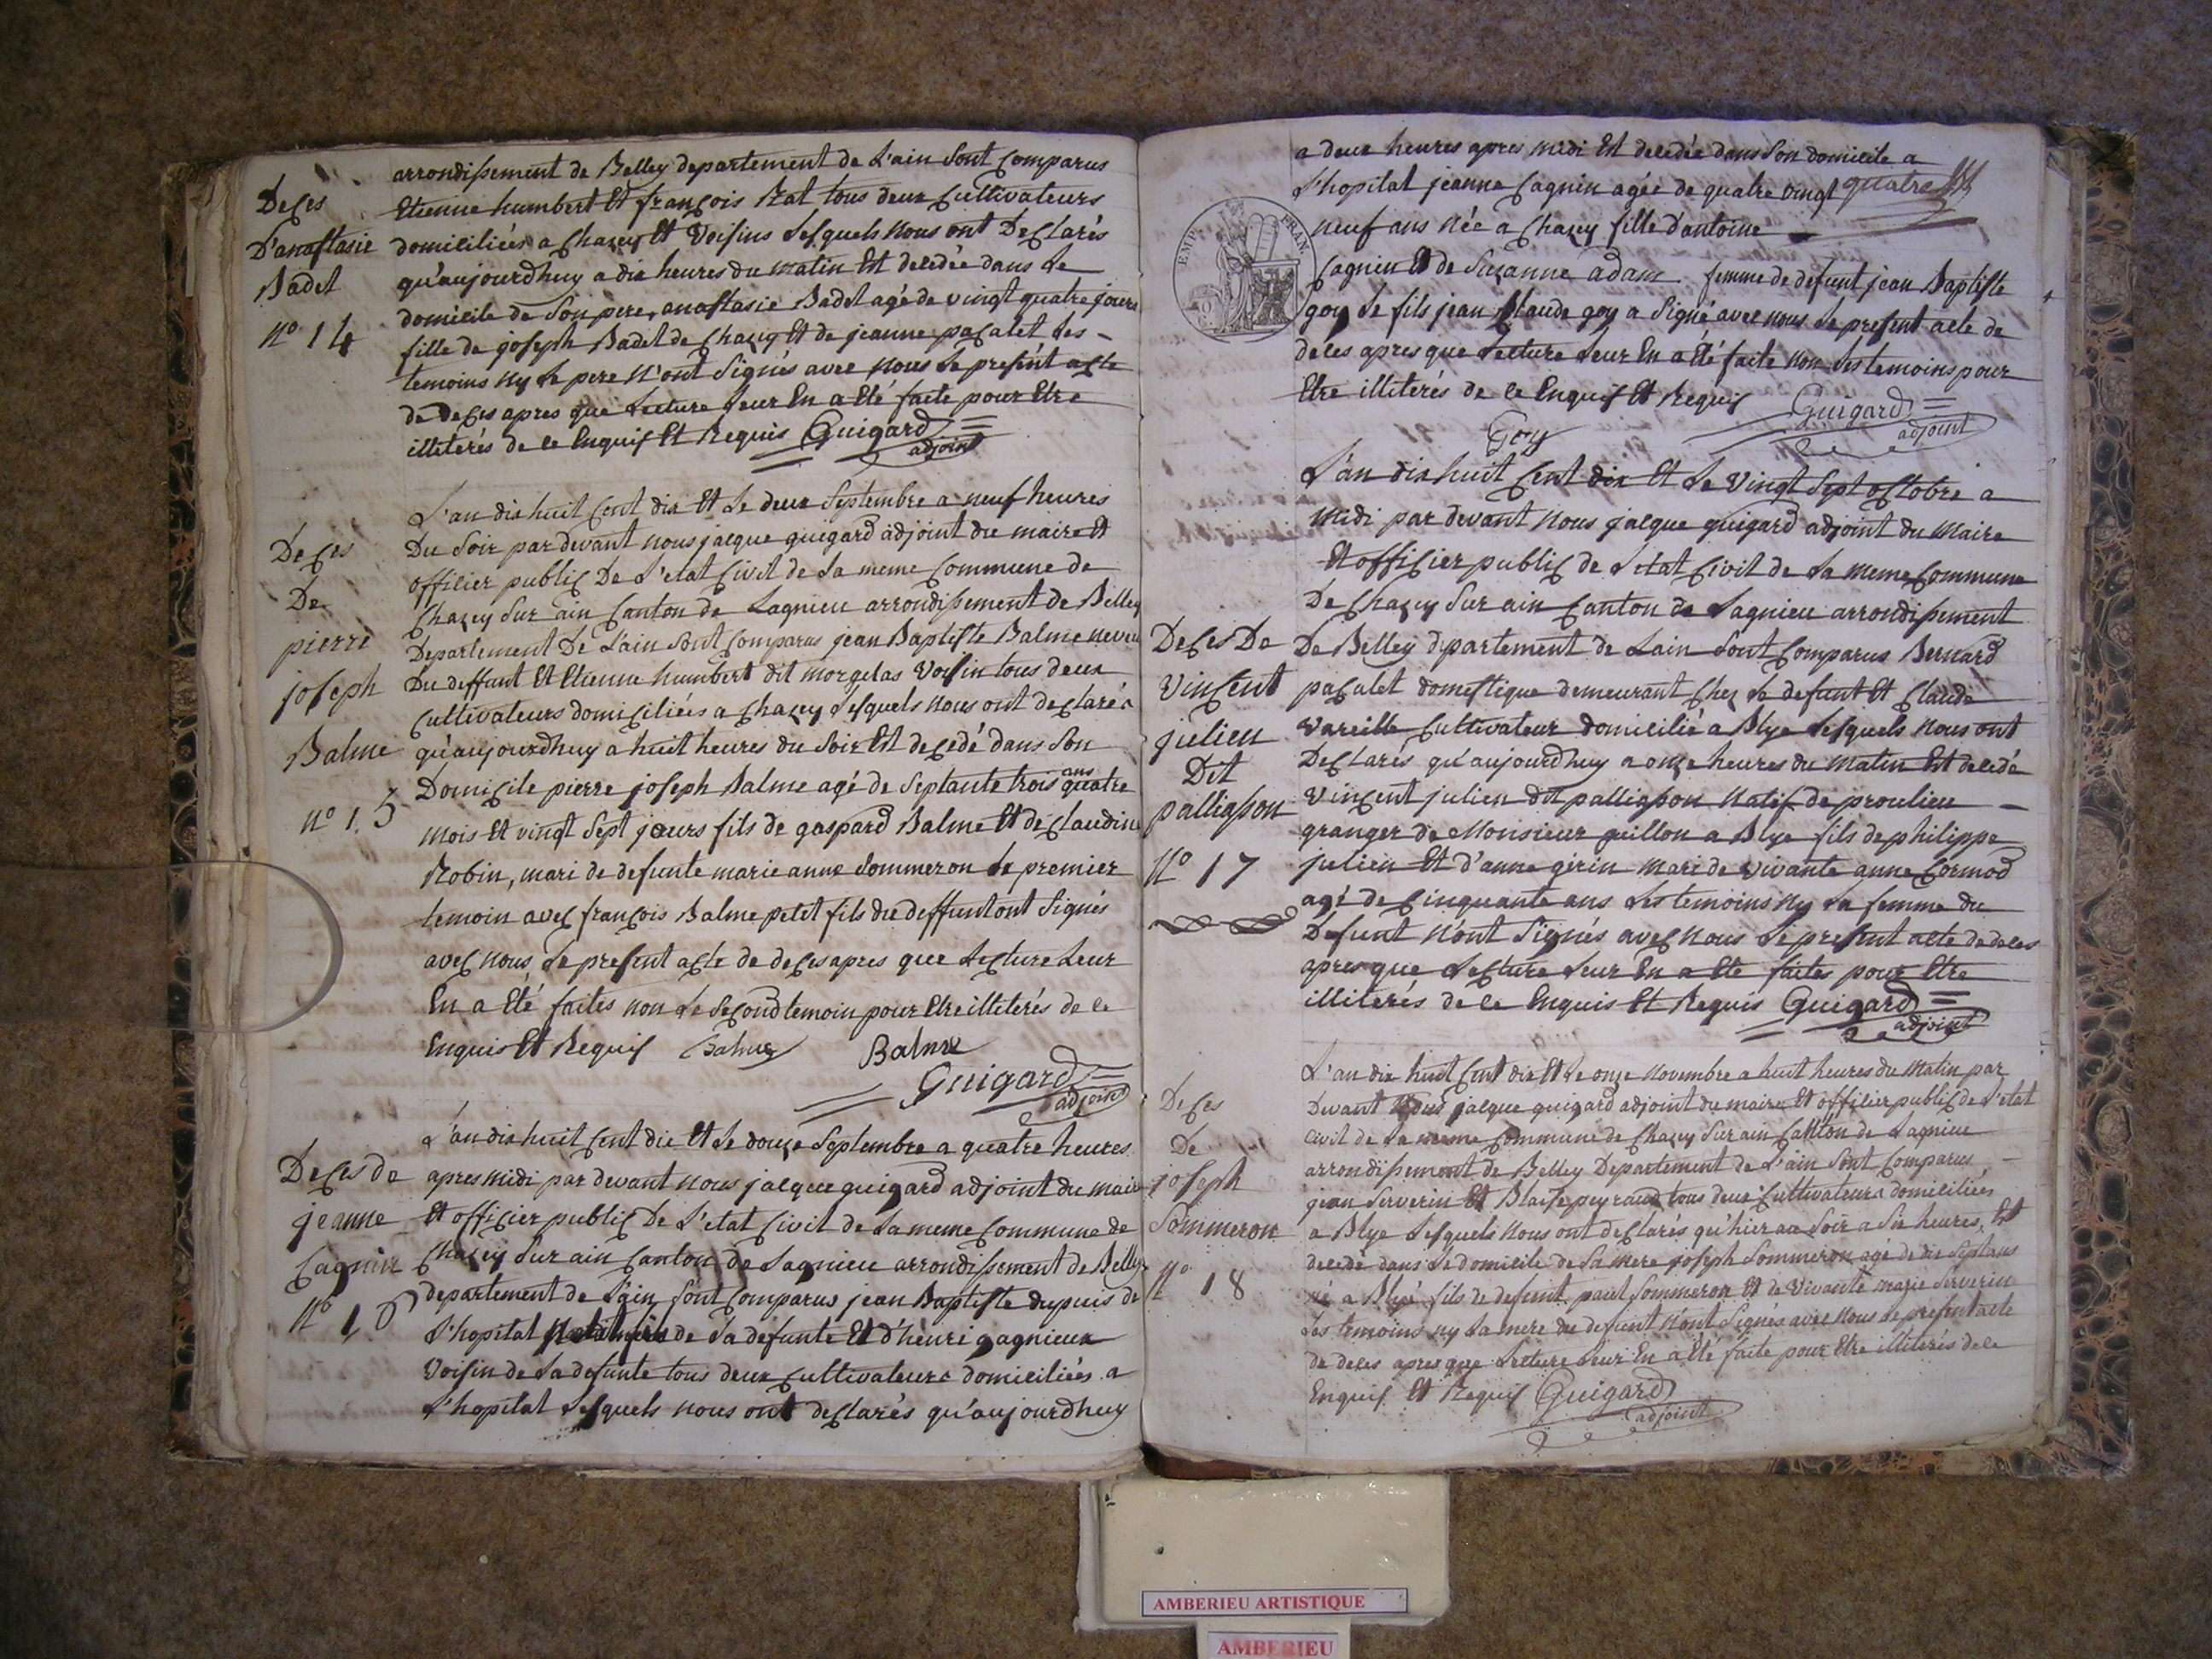 arrondissement de Belley departement de L'ain sont comparus
Etienne humbert Et françois Rat tous deux cultivateurs
domiciliés a Chazey Et Voisins Lesquels nous ont Declarés
qu'aujourdhuy a dix heures du matin Est decedée dans Le
domicile de Son pere, anastasie Badet agé de vingt quatre jours
fille de joseph Badet de Chazey Et de jeanne paçalet Les -
temoins ny Le pere n'ont Signés avec nous Le present acte
de deces apres que Lecture Leur En a Eté faite pour Etre
illiterés de ce Enquis Et Requis Guigard
adjoint
Deces
D'anastasie
Badet
n° 14
L'an dix huit Cent dix Et Le deux Septembre a neuf heures
Du Soir par devant nous jacque guigard adjoint du maire Et
officier public De L'etat Civil de La meme Commune de
Chazey Sur ain Canton de Lagnieu arrondissement de Belley
Departement De L'ain Sont Comparus jean Baptiste Balme neveu
Du deffunt Et Etienne humbert dit morgelas Voisin tous deux
Cultivateurs domiciliés a Chazey Lesquels nous ont declarés
qu'aujourdhuy a huit heures du Soir Est decedé dans Son
Domicile pierre joseph Balme agé de Septante trois ans quatre
mois Et vingt Sept jours fils de gaspard Balme Et de Claudine
Robin, mari de defunte marie anne Sommeron Le premier
temoin avec françois Balme petit fils du deffunt ont Signés
avec nous Le present acte de deces apres que Lecture Leur
En a Eté faites non Le Second temoin pour Etre illiterés de ce
Enquis Et Requis Balme Balme
Guigard
adjoint
Deces
De
pierre
joseph
Balme
n° 15
L'an dix huit Cent dix Et Le douze Septembre a quatre heures
apres midi par devant nous jacque guigard adjoint du maire
Et officier public De L'etat Civil de La meme Commune de
Chazey Sur ain Canton de Lagnieu arrondissement de Belley
departement de L'ain Sont Comparus jean Baptiste dupuis de
L'hopital de La defunte Et d'henri gagnieux
Voisin de La defunte tous deux Cultivateurs domiciliés a
L'hopital Lesquels nous ont declarés qu'aujourdhuy
Deces de
jeanne
Cagnin
N° 16
a deux heures apres midi Est decedée dans Son domicile a
L'hopital jeanne Cagnin agée de quatre vingt quatre
neuf ans née a Chazey fille D'antoine
Cagnin Et de Suzanne adam femme de defunt jean Baptiste
goy Le fils jean Claude goy a Signé avec nous Le present acte de
deces apres que Lecture Leur En a Eté faite non Les temoins pour
Etre illiterés de ce Enquis Et Requis Guigard
Goy adjoint
EMP. FRAN.
L'an dix huit Cent dix Et Le Vingt Sept octobre a
Midi par devant nous jacque guigard adjoint du Maire
Et officier public de L'état Civil de La meme Commune
De Chazey Sur ain Canton de Lagnieu arrondissement
De Belley departement de Lain Sont Comparus Bernard
paçalet domestique demeurant Chez Le defunt Et Claude
Vareille Cultivateur domicilié a Blye Lesquels nous ont
Declarés qu'aujourdhuy a onze heures du matin Est decedé
Vincent julien dit palliasson natif de proulieu -
granger de Monsieur guillon a Blye fils de philippe
julien Et d'anne girin mari de vivante anne Cormod
agé de Cinquante ans Les temoins ny La femme du
Defunt n'ont Signés avec nous Le present acte de deces
apres que Lecture Leur En a Eté faites pour Etre
illiterés de ce Enquis Et Requis Guigard
adjoint
Deces De
Vincent
julien
Dit
palliasson
N° 17
L'an dix huit Cent dix Et Le onze Novembre a huit heures du Matin par
Devant Nous jacque guigard adjoint du maire Et officier public de L'etat
Civil de La meme Commune de Chazey Sur ain Canton de Lagnieu
arrondissement de Belley Departement de L'ain Sont Comparus -
jean Serverin Et Blaise peyraud tous deux Cultivateurs domiciliés
a Blye Lesquels nous ont declarés qu'hier au Soir a Six heures, Est
decedé dans Le domicile de Sa mere joseph Sommeron agé de dix Sept ans
né a Blye fils de defunt paul Sommeron Et de Vivante marie Serverin
Les temoins ny La mere du defunt n'ont Signés avec nous Le present acte
de deces apres que Lecture Leur En a Eté faite pour Etre illiterés de ce
Enquis Et Requis Guigard
adjoint
Deces
De
joseph
Sommeron
N° 18
AMBERIEU ARTISTIQUE
AMBERIEU